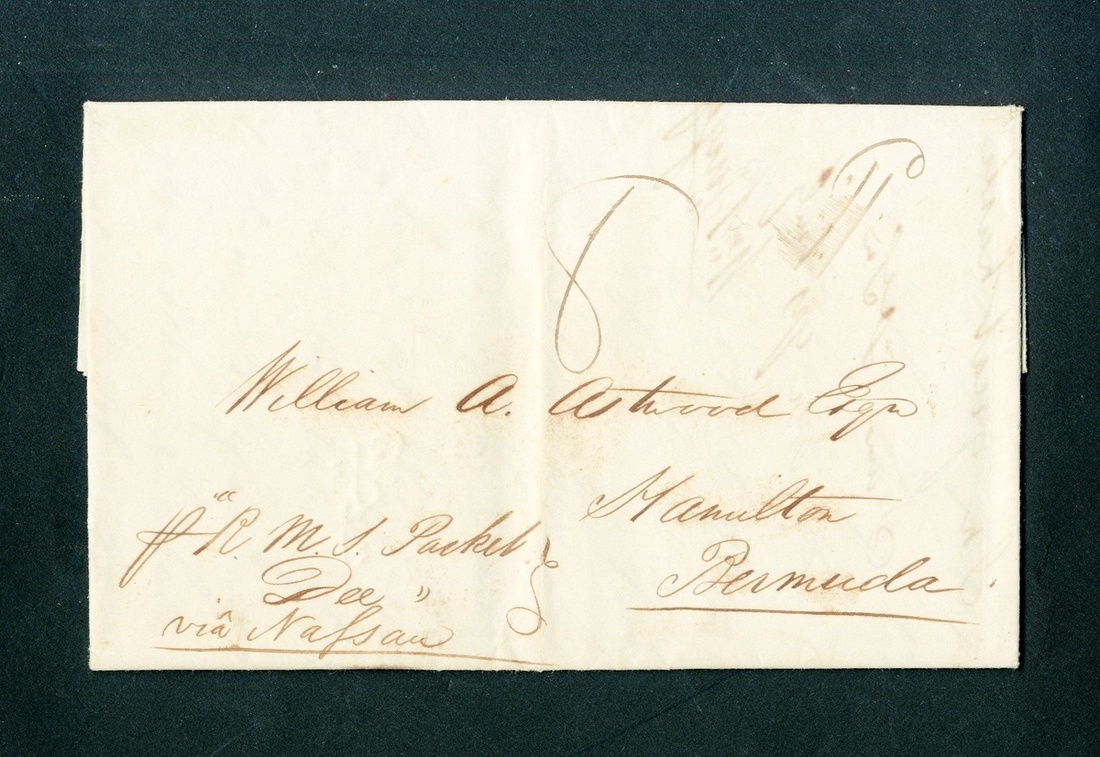 William A. Astwood Esqr
Hamilton
Bermuda
pr "R. M. S. Packet
Dee"
viâ Nassau